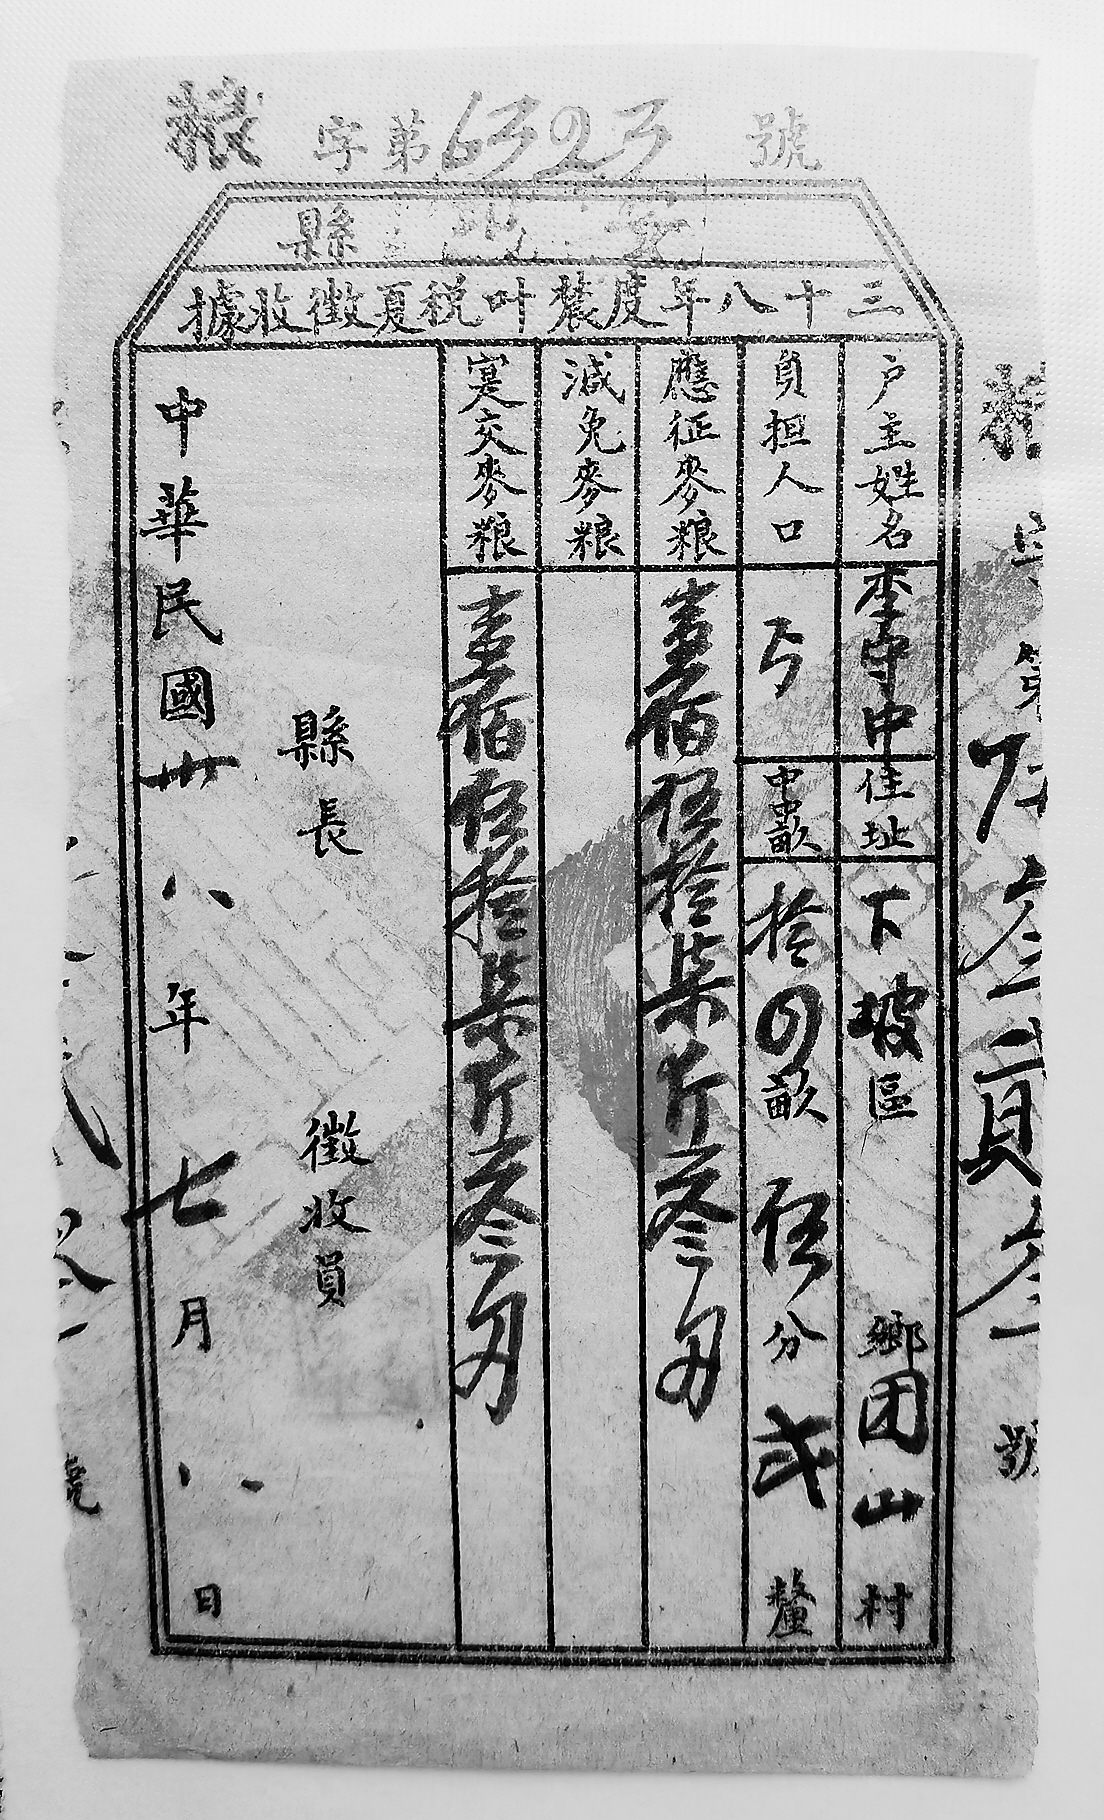 粮字第6323號
縣
三十八年度農叶税夏徵收據
户主姓名 李守中 住址 下坡區 鄉团山村
負担人口 5 中中畝 拾0畝伍分弍釐
應征麥粮 壹佰伍拾柒斤叁刃
減免麥粮
寔交麥粮 壹佰伍拾柒斤叁刃
縣長 徵收員
中華民國卅八年七月八日